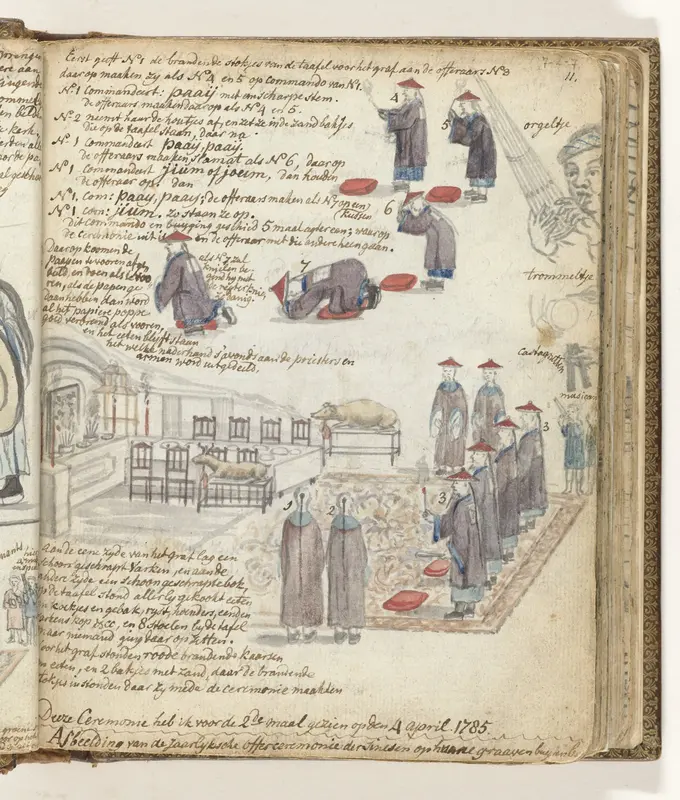 11.
Eerst geeft N.o 1 de brandende stokjes van de taafel voor het graf, aan de offeraars N.o 3
daar op maaken zy als N.o 4 en 5 op commando van N.o 1.
N.o 1 Commandeert: paaij met een scharpe stem.
de offeraars maaken daar op als N.o 4 en 5.
N.o 2 neemt haar de houtjes af, en zet ze in de zand bakjes
die op de taafel staan, daar na
N.o 1 Commandeert paaij, paaij.
de offeraars maaken slamat als N.o 6, daar op
N.o 1 Commandeert jium of joum, dan houden
de offeraar op. dan
N.o 1. com: paay, paay, de offeraars maken als N.o 7 op een
kussen
N.o 1 com: jium. zo staan ze op.
Dit commando en buyging geschied 5 maal agter een; waar op
de ceremonie uit is en de offeraar met die andere heen gaan.
4
5
6
7
orgeltje
trommeltje
Castagnetten
musicant
Daar op koomen de
als N.o 7 zal
knielen be-
ren, als de papen ge-
daan hebben dan word
al het papiere poppe
goed verbrand als vooren,
en het eeten blyft staan
het welke naderhand s'avonds aan de priesters en
armen word uitgedeeld.
3
3
1
2
Aan de eene zyde van het graf lag een
schoon geschrapt varken, en aan de
andere zyde een schoon geschrapte bok,
op de taafel stond allerly gekookt eeten
en koekjes en gebak, ryst, hoenders, eenden
varkens kop &cc, en 8 stoelen by de tafel
maar niemand ging daar op zitten.
voor het graf stonden roode brandende kaarsen
en eeten, en 2 bakjes met zand, daar de brandende
stokjes in stonden daar zy meede de ceremonie maakten
Deeze Ceremonie heb ik voor de 2de maal gezien op den 4 april. 1785.
Afbeelding van de Jaarlyksche offerceremonie der Sineesen op hunne graaven buyten